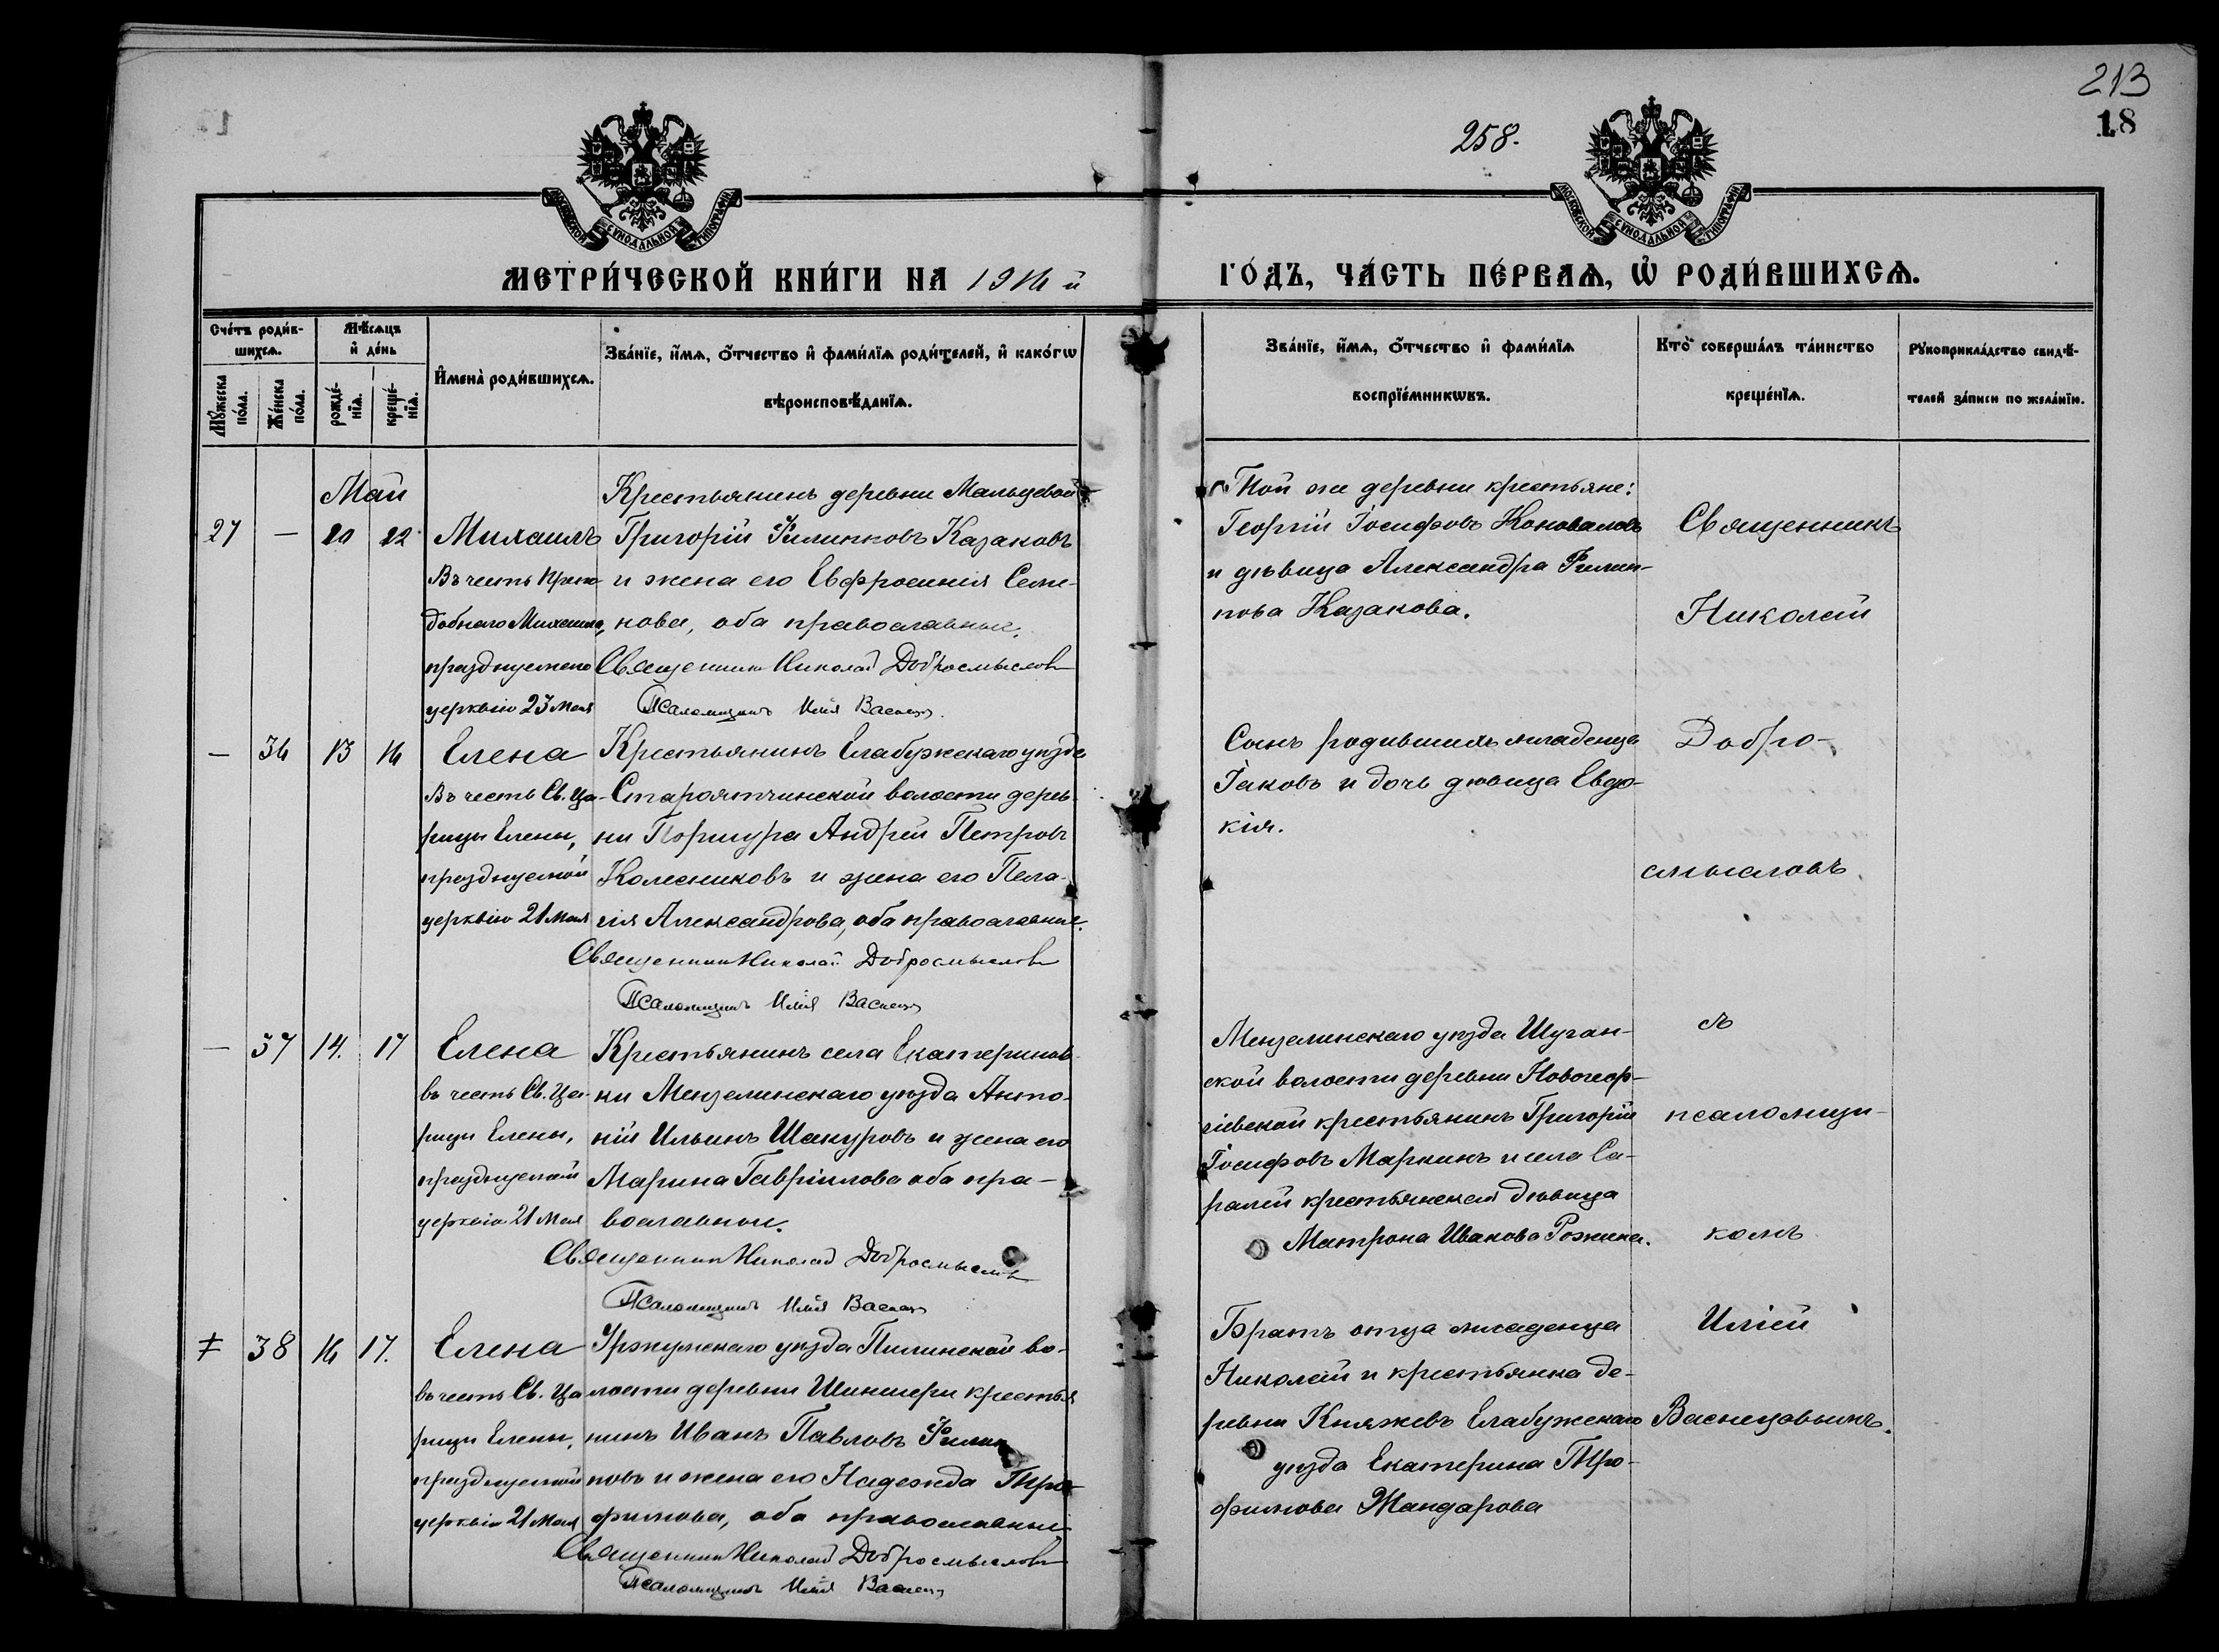 213
18
258.
МОСКОВСКОЙ СѴНОДАЛЬНОЙ ТИПОГРАФІИ
МОСКОВСКОЙ СѴНОДАЛЬНОЙ ТИПОГРАФІИ
МЕТРИ́ЧЕСКОЙ КНИ́ГИ НА 1914 й
ГО́ДЪ, ЧА́СТЬ ПЕ́РВАѦ, Ѡ҆ РОДИ́ВШИХСѦ.
Сче́тъ роди́в-
шихсѧ.
Мꙋ́жеска по́ла.
Же́нска по́ла.
Мѣ́сѧцъ
и҆ де́нь
рожде́-
нїѧ.
креще́-
нїѧ.
И҆мена̀ роди́вшихсѧ.
Зва́нїе, и҆́мѧ, ѻ҆́тчество и҆ фами́лїѧ роди́телей, и҆ како́гѡ
вѣроисповѣ́данїѧ.
Зва́нїе, и҆́мѧ, ѻ҆́тчество и҆ фами́лїѧ
воспрїе́мникѡвъ.
Кто̀ соверша́лъ та́инство
креще́нїѧ.
Рꙋкоприкла́дство свидѣ́-
телей за́писи по жела́нїю.
Май
27 — 20 22
Михаилъ
Въ честь Препо-
добнаго Михаила,
празднуемаго
церквію 23 Мая
Крестьянинъ деревни Мальцевой
Григорій Филипповъ Казаковъ
и жена его Евфросинія Семе-
нова, оба православные.
Священник Николай Добросмыслов
Псаломщикъ Илія Васнецов
Той же деревни крестьяне:
Георгій Іосифовъ Коноваловъ
и дѣвица Александра Филип-
пова Казакова.
Священникъ
Николай
Добро-
смысловъ
съ
псаломщи-
комъ
Иліей
Васнецовымъ.
— 36 13 14
Елена
Въ честь Св. Ца-
рицы Елены,
празднуемой
церквію 21 Мая
Крестьянинъ Елабужскаго уѣзда
Староятчинской волости дерев-
ни Поршура Андрей Петровъ
Колесниковъ и жена его Пела-
гія Александрова, оба православные.
Священник Николай Добросмыслов
Псаломщикъ Илія Васнецов
Сынъ родившихъ младенца
Іаковъ и дочь дѣвица Евдо-
кія.
— 37 14. 17
Елена
въ честь Св. Ца-
рицы Елены,
празднуемой
церквію 21 Мая
Крестьянинъ села Екатеринов-
ки Мензелинскаго уѣзда Анто-
ній Ильинъ Шакуровъ и жена его
Марина Гавріилова оба пра-
вославные.
Священник Николай Добросмыслов
Псаломщикъ Илія Васнецов
Мензелинскаго уѣзда Шуган-
ской волости деревни Новогеор-
гіевской крестьянинъ Григорій
Іосифовъ Маркинъ и села Са-
ралей крестьянская дѣвица
Матрона Иванова Рожина.
38 14 17.
Елена
въ честь Св. Ца
рицы Елены,
празднуемой
церквію 21 Мая
Уржумскаго уѣзда Пилинской во-
лости деревни Шиншери крестья
нинъ Иванъ Павловъ Филип
повъ и жена его Надежда Тро-
фимова, оба православные
Священник Николай Добросмыслов
Псаломщикъ Илія Васнецов
Братъ отца младенца
Николай и крестьянка де-
ревни Княжевъ Елабужскаго
уѣзда Екатерина Тро-
фимова Жандарова